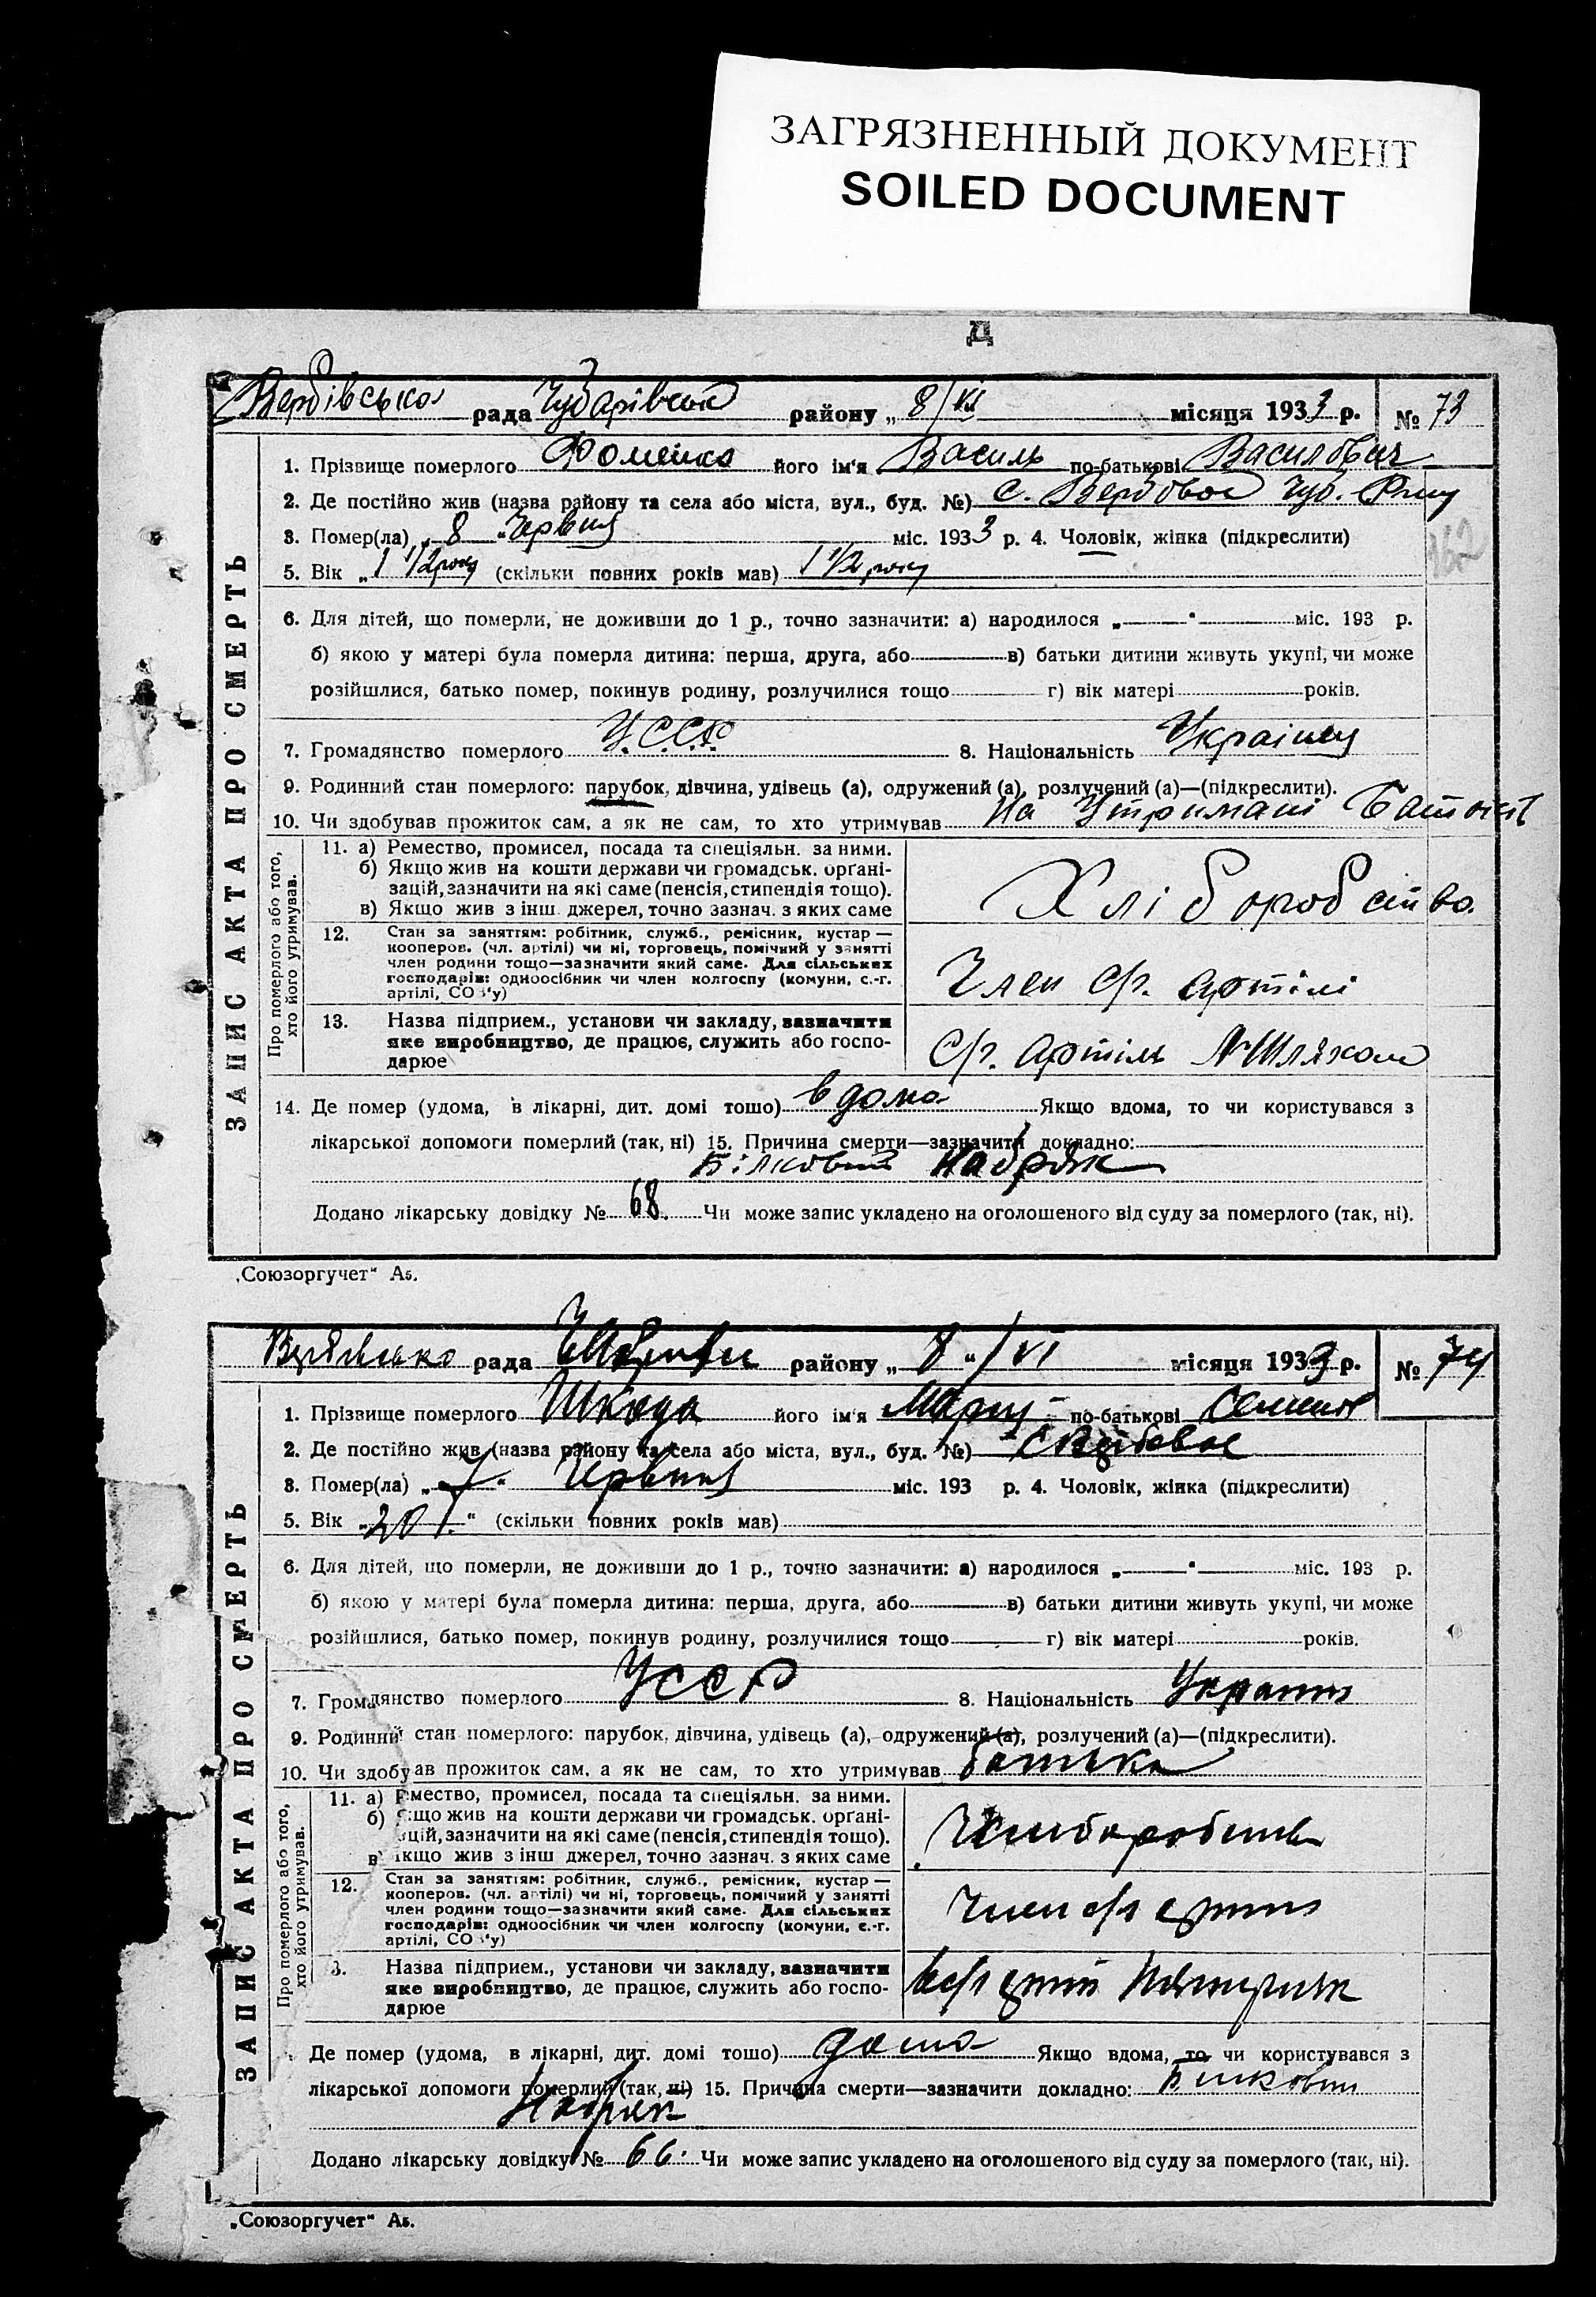 ЗАГРЯЗНЕННЫЙ ДОКУМЕНТ
SOILED DOCUMENT
Д
ЗАПИС АКТА ПРО СМЕРТЬ
Вербівська рада Чубарівськ району „ 8/VI місяця 1933 р. № 73
1. Прізвище померлого Фоменко його ім'я Василь по-батькові Василович
2. Де постійно жив (назва району та села або міста, вул., буд. №) с. Вербовое Чуб. Р-ну
3. Помер(ла) „ 8 “ Червня міс. 1933 р. 4. Чоловік, жінка (підкреслити)
162
5. Вік „1 1/2 року (скільки повних років мав) 1 1/2 року
6. Для дітей, що померли, не доживши до 1 р., точно зазначити: а) народилося „ “ міс. 193 р.
б) якою у матері була померла дитина: перша, друга, або в) батьки дитини живуть укупі, чи може
розійшлися, батько помер, покинув родину, розлучилися тощо г) вік матері років.
7. Громадянство померлого У.С.С.Р 8. Національність Украінец
9. Родинний стан померлого: парубок, дівчина, удівець (а), одружений (а), розлучений (а)—(підкреслити).
10. Чи здобував прожиток сам, а як не сам, то хто утримував На Утримані Батьків
Про померлого або того, хто його утримував.
11. а) Ремество, промисел, посада та спеціяльн. за ними.
б) Якщо жив на кошти держави чи громадськ. органі-
зацій, зазначити на які саме (пенсія, стипендія тощо).
в) Якщо жив з інш джерел, точно зазнач. з яких саме
Хліборобство.
12. Стан за заняттям: робітник, служб., ремісник, кустар —
кооперов. (чл. артілі) чи ні, торговець, помічний у занятті
член родини тощо—зазначити який саме. Для сільських
господарів: одноосібник чи член колгоспу (комуни, с.-г.
артілі, СОЗ'у)
Член с/г. артілі
13. Назва підприєм., установи чи закладу, зазначити
яке виробництво, де працює, служить або госпо-
дарює
С/г. артіль Шляхом
14. Де помер (удома, в лікарні, дит. домі тощо) в дома Якщо вдома, то чи користувався з
лікарської допомоги померлий (так, ні) 15. Причина смерти—зазначити докладно:
Білковий Набряк
Додано лікарську довідку № 68. Чи може запис укладено на оголошеного від суду за померлого (так, ні).
„Союзоргучет“ А5.
ЗАПИС АКТА ПРО СМЕРТЬ
рада району „ 8 “ /VI місяця 1933 р. № 74
1. Прізвище померлого Шкода його ім'я Марія по-батькові Семенов
2. Де постійно жив (назва району та села або міста, вул., буд. №) с Вербовое
3. Помер(ла) „ “ Червня міс. 193 р. 4. Чоловік, жінка (підкреслити)
5. Вік „20 р.“ (скільки повних років мав)
6. Для дітей, що померли, не доживши до 1 р., точно зазначити: а) народилося „ “ міс. 193 р.
б) якою у матері була померла дитина: перша, друга, або в) батьки дитини живуть укупі, чи може
розійшлися, батько помер, покинув родину, розлучилися тощо г) вік матері років.
7. Громадянство померлого УССР 8. Національність
9. Родинний стан померлого: парубок, дівчина, удівець (а), одружений (а), розлучений (а)—(підкреслити).
10. Чи здобував прожиток сам, а як не сам, то хто утримував батько
Про померлого або того, хто його утримував.
11. а) Ремество, промисел, посада та спеціяльн. за ними.
б) Якщо жив на кошти держави чи громадськ. органі-
зацій, зазначити на які саме (пенсія, стипендія тощо).
в) Якщо жив з інш джерел, точно зазнач. з яких саме
12. Стан за заняттям: робітник, служб., ремісник, кустар —
кооперов. (чл. артілі) чи ні, торговець, помічний у занятті
член родини тощо—зазначити який саме. Для сільських
господарів: одноосібник чи член колгоспу (комуни, с.-г.
артілі, СОЗ'у)
Член с/г артілі
3. Назва підприєм., установи чи закладу, зазначити
яке виробництво, де працює, служить або госпо-
дарює
Де помер (удома, в лікарні, дит. домі тощо) дома Якщо вдома, то чи користувався з
лікарської допомоги померлий (так, ні) 15. Причина смерти—зазначити докладно: Білковий
Набряк
Додано лікарську довідку № 66. Чи може запис укладено на оголошеного від суду за померлого (так, ні).
„Союзоргучет“ А5.